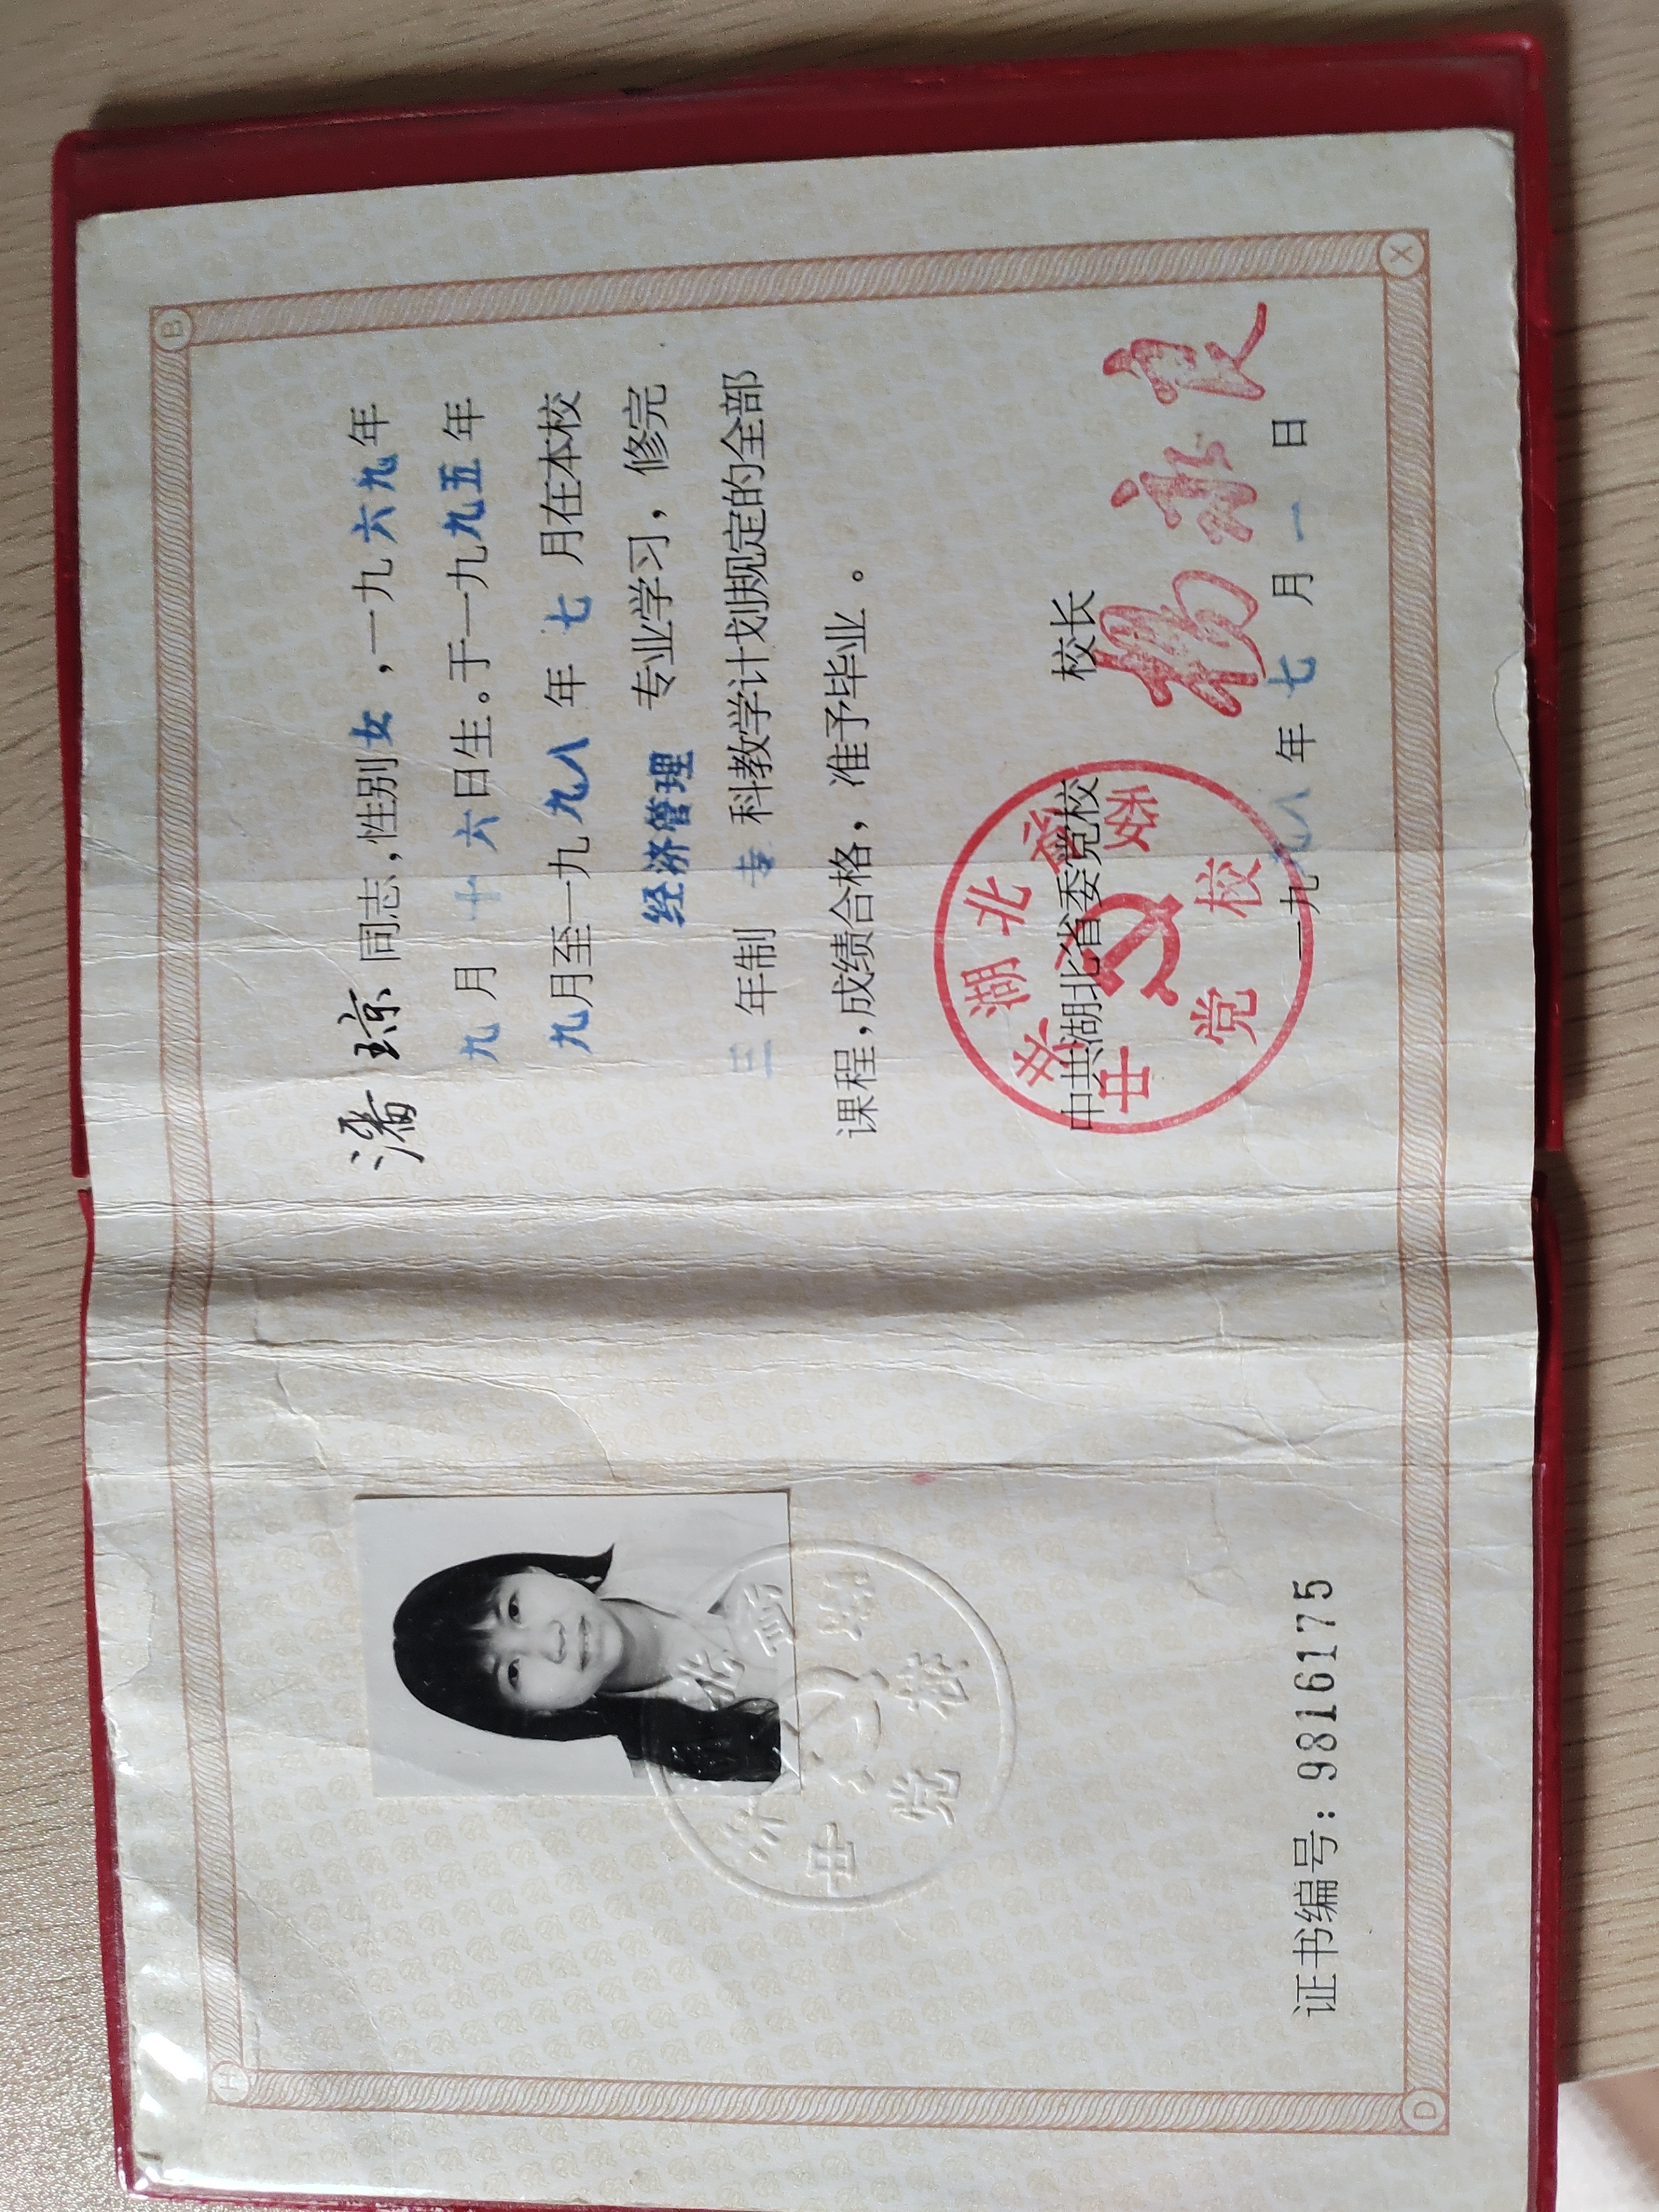 H
B
D
X
证书编号：98161175
潘琼同志，性别女，一九六九年
九月十六日生。于一九九五年
九月至一九九八年七月在本校
经济管理 专业学习，修完
三年制 专 科教学计划规定的全部
课程，成绩合格，准予毕业。
中共湖北省委党校 校长
杨永良
中共湖北省委
党校
一九九八年七月一日